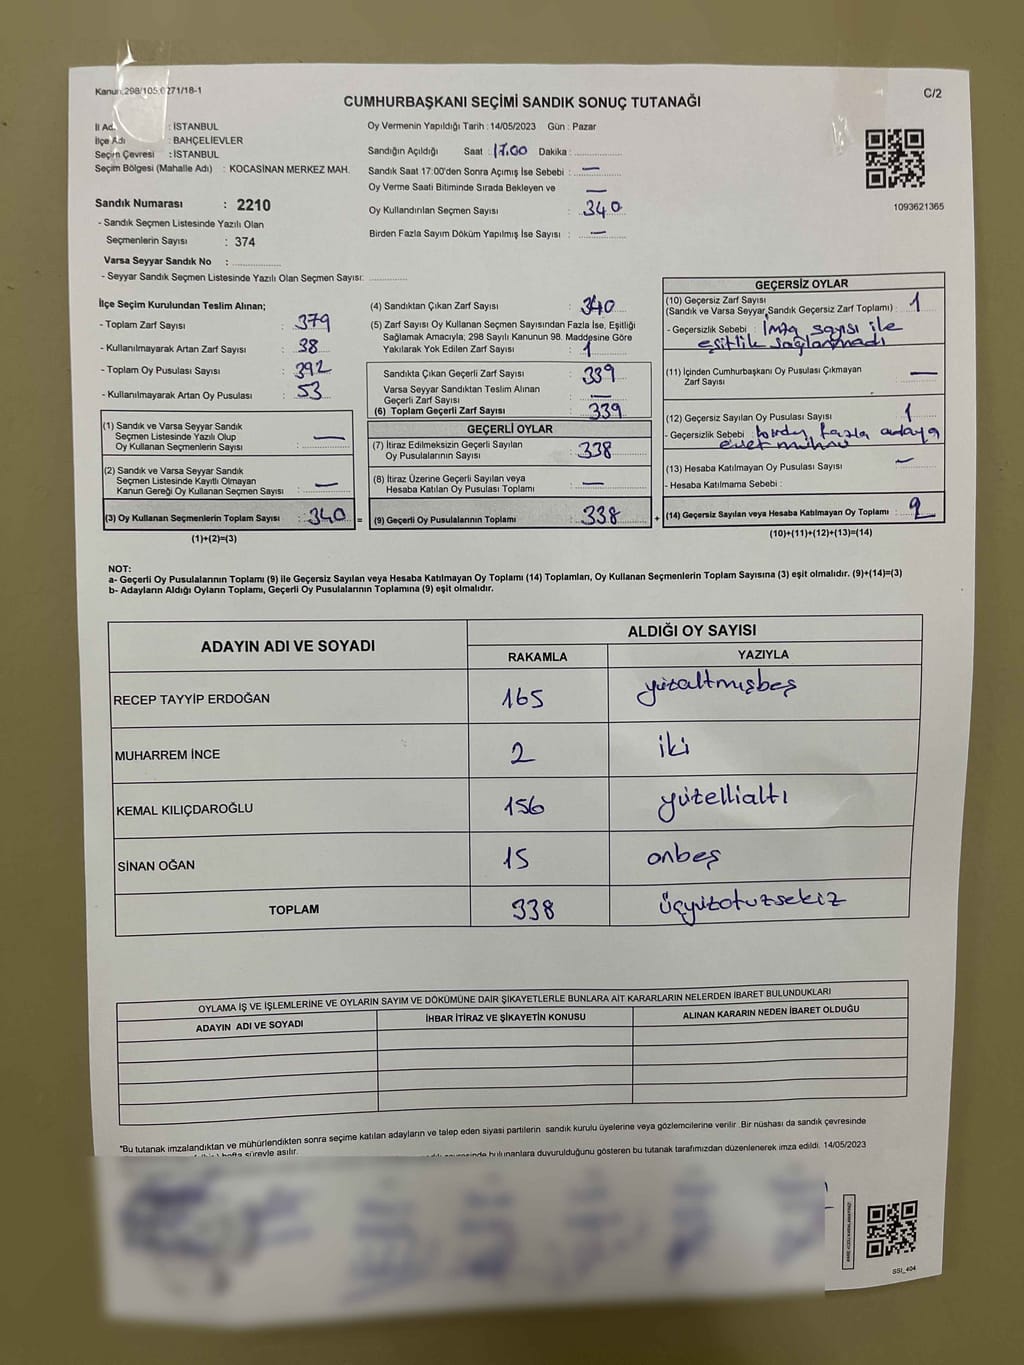 Kanun:298/105,6271/18-1
C/2
CUMHURBAŞKANI SEÇİMİ SANDIK SONUÇ TUTANAĞI
İl Adı : İSTANBUL
İlçe Adı : BAHÇELİEVLER
Seçim Çevresi : İSTANBUL
Seçim Bölgesi (Mahalle Adı) : KOCASİNAN MERKEZ MAH.
Sandık Numarası : 2210
- Sandık Seçmen Listesinde Yazılı Olan
Seçmenlerin Sayısı : 374
Varsa Seyyar Sandık No :
- Seyyar Sandık Seçmen Listesinde Yazılı Olan Seçmen Sayısı:
Oy Vermenin Yapıldığı Tarih : 14/05/2023 Gün : Pazar
Sandığın Açıldığı Saat : 17.00 Dakika :
Sandık Saat 17:00'den Sonra Açımış İse Sebebi : —
Oy Verme Saati Bitiminde Sırada Bekleyen ve —
Oy Kullandırılan Seçmen Sayısı : 340
Birden Fazla Sayım Döküm Yapılmış İse Sayısı : —
1093621365
İlçe Seçim Kurulundan Teslim Alınan;
- Toplam Zarf Sayısı : 379
- Kullanılmayarak Artan Zarf Sayısı : 38
- Toplam Oy Pusulası Sayısı : 392
- Kullanılmayarak Artan Oy Pusulası : 53
(1) Sandık ve Varsa Seyyar Sandık
Seçmen Listesinde Yazılı Olup
Oy Kullanan Seçmenlerin Sayısı : —
(2) Sandık ve Varsa Seyyar Sandık
Seçmen Listesinde Kayıtlı Olmayan
Kanun Gereği Oy Kullanan Seçmen Sayısı : —
(3) Oy Kullanan Seçmenlerin Toplam Sayısı : 340 =
(1)+(2)=(3)
(4) Sandıktan Çıkan Zarf Sayısı : 340
(5) Zarf Sayısı Oy Kullanan Seçmen Sayısından Fazla İse, Eşitliği
Sağlamak Amacıyla; 298 Sayılı Kanunun 98. Maddesine Göre
Yakılarak Yok Edilen Zarf Sayısı : 1
Sandıkta Çıkan Geçerli Zarf Sayısı : 339
Varsa Seyyar Sandıktan Teslim Alınan
Geçerli Zarf Sayısı : —
(6) Toplam Geçerli Zarf Sayısı : 339
GEÇERLİ OYLAR
(7) İtiraz Edilmeksizin Geçerli Sayılan
Oy Pusulalarının Sayısı : 338
(8) İtiraz Üzerine Geçerli Sayılan veya
Hesaba Katılan Oy Pusulası Toplamı : —
(9) Geçerli Oy Pusulalarının Toplamı : 338 +
GEÇERSİZ OYLAR
(10) Geçersiz Zarf Sayısı
(Sandık ve Varsa Seyyar Sandık Geçersiz Zarf Toplamı) : 1
- Geçersizlik Sebebi : İmza sayısı ile
eşitlik sağlanmadı
(11) İçinden Cumhurbaşkanı Oy Pusulası Çıkmayan
Zarf Sayısı : —
(12) Geçersiz Sayılan Oy Pusulası Sayısı : 1
- Geçersizlik Sebebi : birden fazla adaya
evet mührü
(13) Hesaba Katılmayan Oy Pusulası Sayısı : —
- Hesaba Katılmama Sebebi :
(14) Geçersiz Sayılan veya Hesaba Katılmayan Oy Toplamı : 2
(10)+(11)+(12)+(13)=(14)
NOT:
a- Geçerli Oy Pusulalarının Toplamı (9) ile Geçersiz Sayılan veya Hesaba Katılmayan Oy Toplamı (14) Toplamları, Oy Kullanan Seçmenlerin Toplam Sayısına (3) eşit olmalıdır. (9)+(14)=(3)
b- Adayların Aldığı Oyların Toplamı, Geçerli Oy Pusulalarının Toplamına (9) eşit olmalıdır.
ADAYIN ADI VE SOYADI
ALDIĞI OY SAYISI
RAKAMLA YAZIYLA
RECEP TAYYİP ERDOĞAN 165 yüzaltmışbeş
MUHARREM İNCE 2 iki
KEMAL KILIÇDAROĞLU 156 yüzellialtı
SİNAN OĞAN 15 onbeş
TOPLAM 338 üçyüzotuzsekiz
OYLAMA İŞ VE İŞLEMLERİNE VE OYLARIN SAYIM VE DÖKÜMÜNE DAİR ŞİKAYETLERLE BUNLARA AİT KARARLARIN NELERDEN İBARET BULUNDUKLARI
ADAYIN ADI VE SOYADI İHBAR İTİRAZ VE ŞİKAYETİN KONUSU ALINAN KARARIN NEDEN İBARET OLDUĞU
*Bu tutanak imzalandıktan ve mühürlendikten sonra seçime katılan adayların ve talep eden siyasi partilerin sandık kurulu üyelerine veya gözlemcilerine verilir. Bir nüshası da sandık çevresinde
hafta süreyle asılır.
bulunanlara duyurulduğunu gösteren bu tutanak tarafımızdan düzenlenerek imza edildi. 14/05/2023
SSI_404